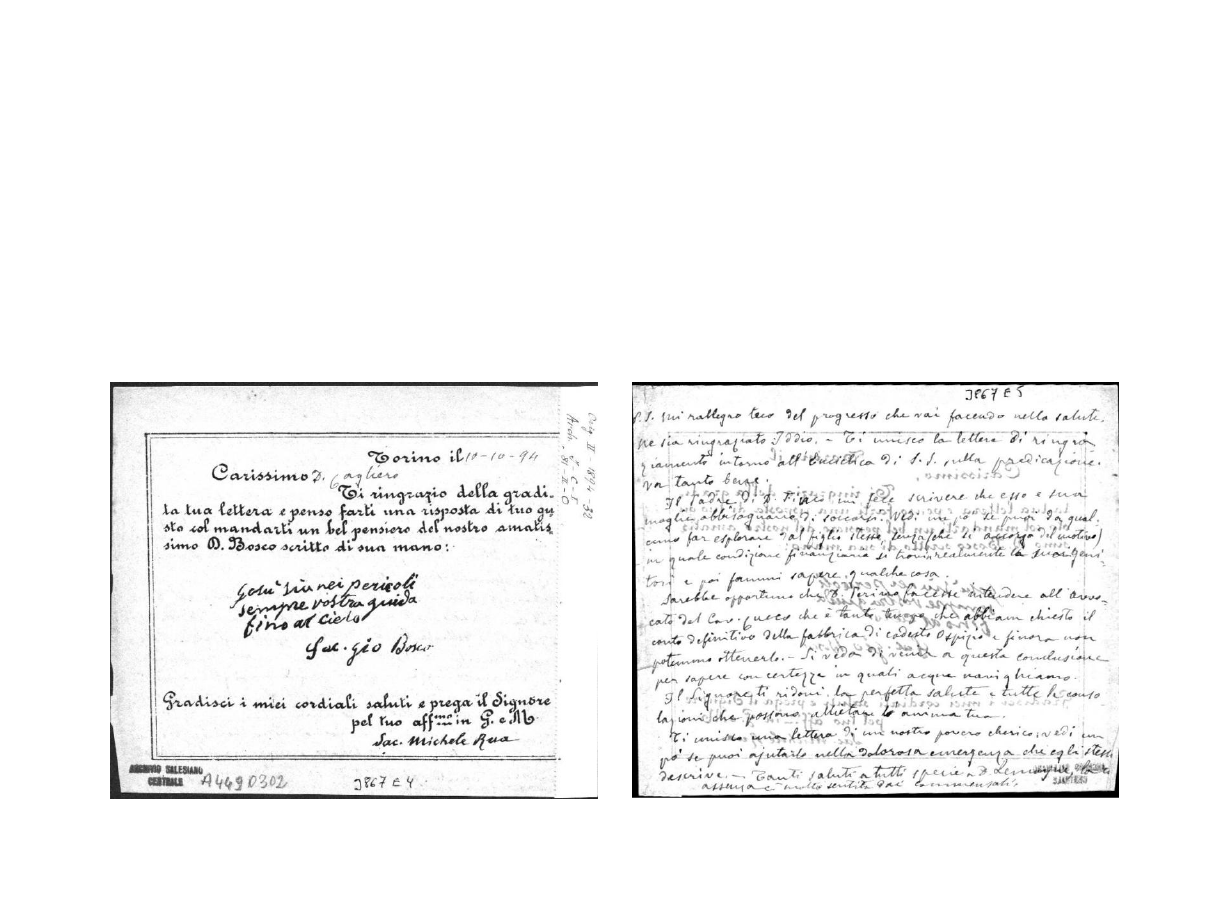 Torino il 10-10-94
Carissimo D. Cagliero
Ti ringrazio della gradi-
ta tua lettera e penso farti una risposta di tuo gu
sto col mandarti un bel pensiero del nostro amatis
simo D. Bosco scritto di sua mano:
Gesù sia nei pericoli
sempre vostra guida
fino al cielo
Sac. Gio Bosco
Gradisci i miei cordiali saluti e prega il Signore
pel tuo affmo in G. e M.
Sac. Michele Rua
ARCHIVIO SALESIANO
CENTRALE
A4490302
3867 E 4
3867 E 5
P.S. Mi rallegro teco del progresso che vai facendo nella salute.
ne sia ringraziato Iddio. – Ti unisco la lettera di ringra
ziamento intorno all'Enciclica di S.S. sulla predicazione.
va tanto bene.
Il Padre di D. mi fece scrivere che esso e sua
moglie abbisognano di soccorsi. Vedi un po' se puoi da qual-
cuno far esplorare dal figlio stesso (senza che si accorga del motivo)
in quale condizione finanziaria si trovino realmente la suoi geni
tori e poi fammi sapere qualche cosa.
Sarebbe opportuno che D. facesse intendere all'avvo-
cato del Cav. che è tanto tempo che abbiam chiesto il
conto definitivo della fabbrica di codesto Ospizio e finora non
potemmo ottenerlo. – Si veda di venir a questa conclusione
per sapere con certezza in quali acque navighiamo.
Il Signore ti ridoni la perfetta salute e tutte le conso
lazioni che possono allietare la anima tua.
Ti unisco una lettera di un nostro povero chierico; vedi un
po' se puoi ajutarlo nella dolorosa emergenza che egli stesso
descrive. – Tanti saluti a tutti specie a D.
assenza è molto sentita dai commensali.